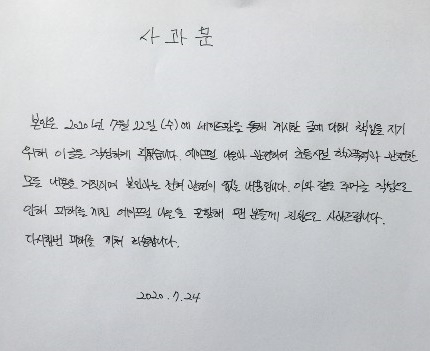 사 과 문
본인은 2020년 7월 22일 (수)에 네이트판을 통해 게시한 글에 대해 책임을 지기
위해 이 글을 작성하게 되었습니다. 에이프릴 나은과 관련하여 초등시절 학교폭력과 관련한
모든 내용은 거짓이며 본인과는 전혀 관련이 없는 내용입니다. 이와 같은 루머글 작성으로
인해 피해를 끼친 에이프릴 나은을 포함해 팬 분들께 진심으로 사과드립니다.
다시한번 피해를 끼쳐 죄송합니다.
2020.7.24